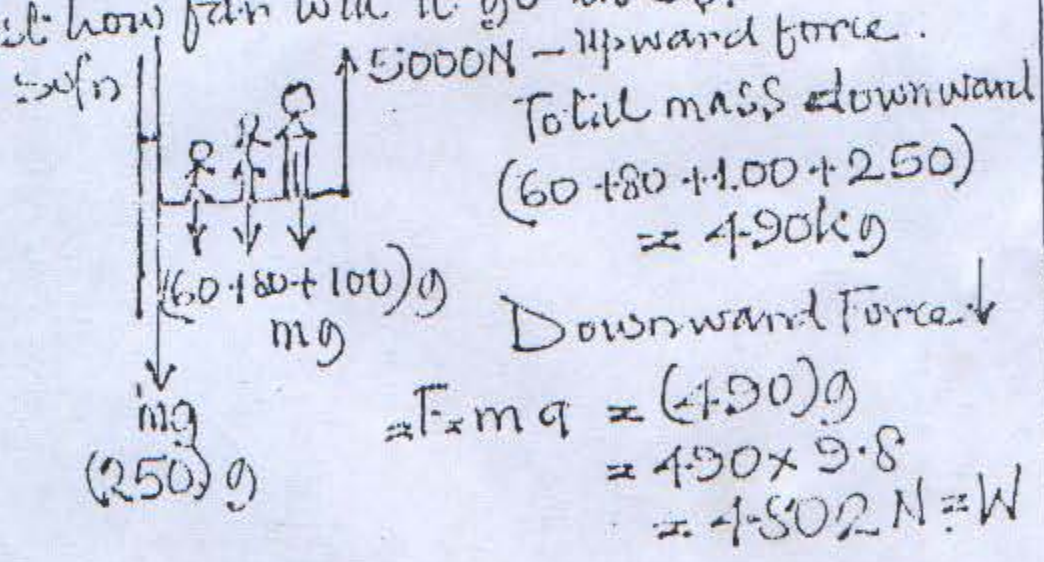 how far will it go in
soln
5000N - Upward force.
Total mass downward
(60 + 80 + 100 + 250)
= 490kg
(60 + 80 + 100)g
mg
Downward Force ↓
mg
(250) g
= F = ma = (490)g
= 490 x 9.8
= 4802 N = W